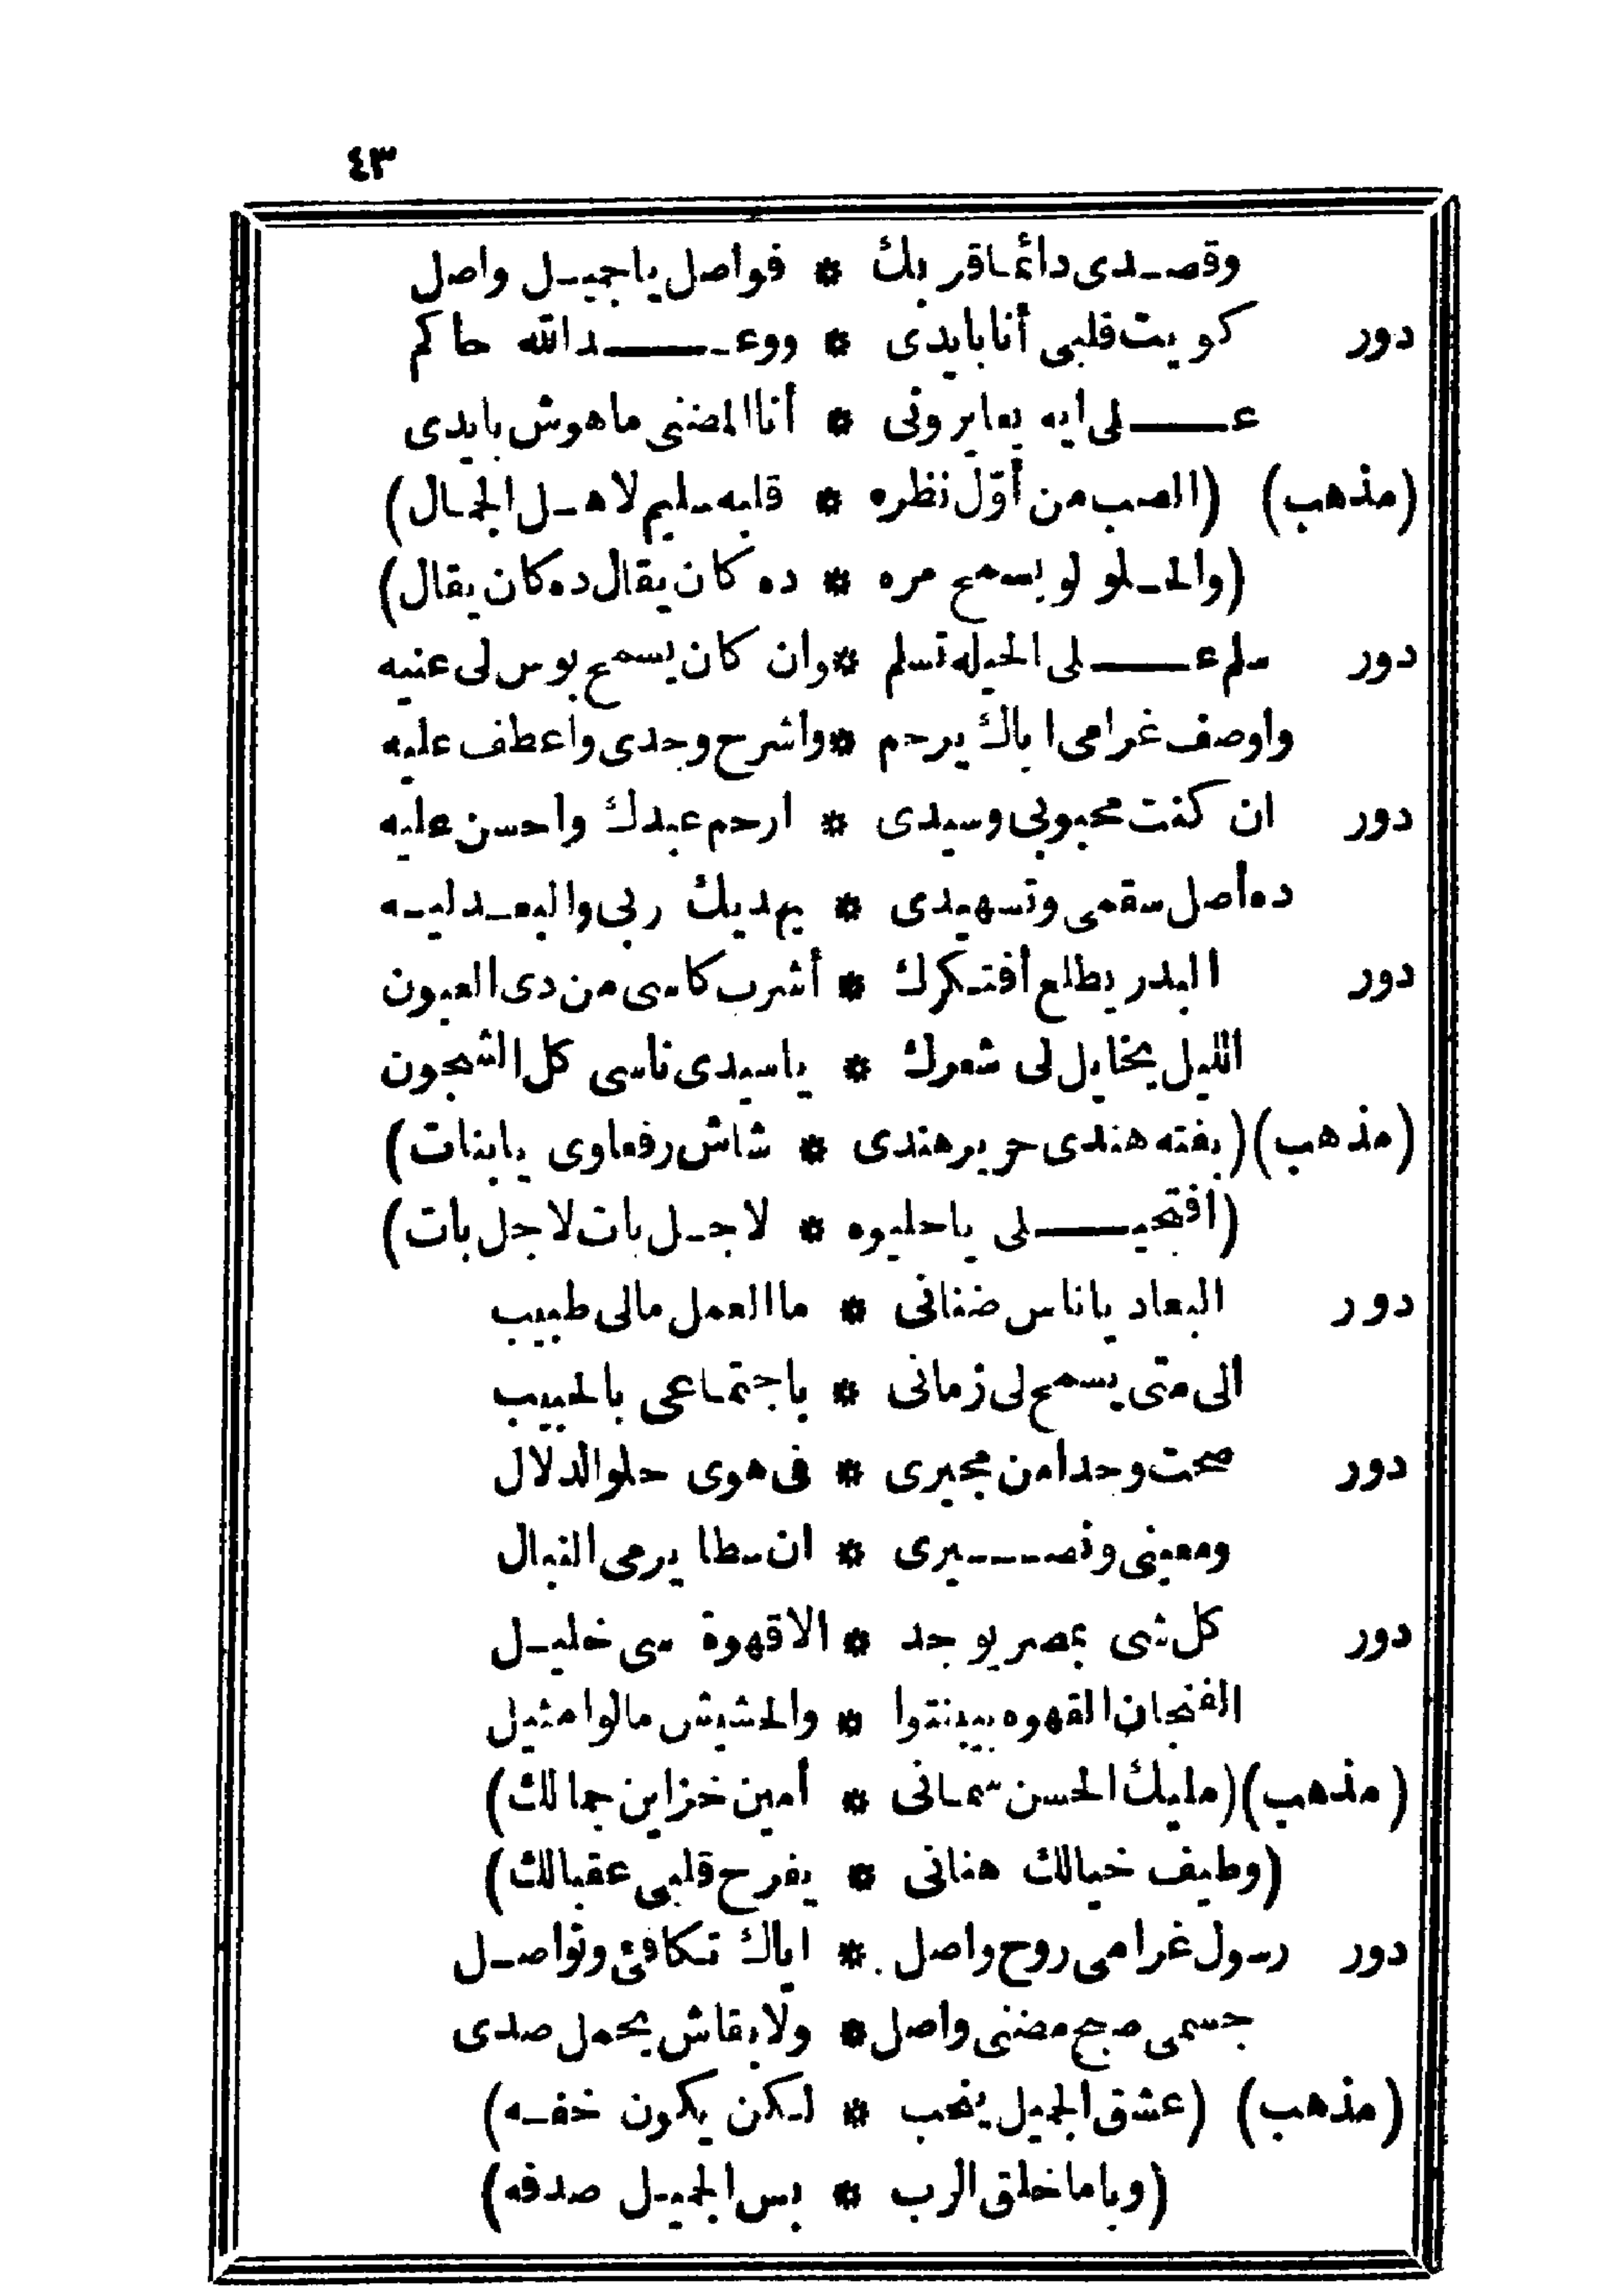 ٤٣
وقصدى دائما قربك * فواصل ياجميل واصل
دور كويت قلبى أنا بايدى * ووعد الله حاكم
على ايه يعايرونى * أنا المضنى ماهوش بايدى
(مذهب) (الصب من أوّل نظره * قلبه سليم لاهل الجمال)
(والحلو لو يسمح مره * ده كان يقال ده كان يقال)
دور سلم على الحيله تسلم * وان كان يسمح بوس لى عنيه
واوصف غرامى اياك يرحم * واشرح وجدى واعطف عليه
دور ان كنت محبوبى وسيدى * ارحم عبدك واحسن عليه
ده أصل سقمى وتسهيدى * يهديك ربى والبعد ليه
دور البدر يطلع أفتكرك * أشرب كاسى من دى العيون
الليل يخايل لى شعرك * ياسيدى ناسى كل الشجون
(مذهب) (بفته هندى حرير هندى * شاش رفعاوى يابنات)
(افتحيلى ياحليوه * لاجل بات لاجل بات)
دور البعاد ياناس ضنانى * ما العمل مالى طبيب
الى متى يسمح لى زمانى * باجتماعى بالحبيب
دور صحت وجدا من مجيرى * فى هوى حلو الدلال
ومعينى ونصيرى * ان سطا يرمى النبال
دور كل شى بمصر يوجد * الا قهوة سى خليل
الفنجان القهوه بيدنتوا * والحشيش مالوا مثيل
(مذهب) (مليك الحسن سمانى * أمين خزاين جمالك)
(وطيف خيالك هنانى * يفرح قلبى عقبالك)
دور رسول غرامى روح واصل . * اياك تكافئ وتواصل
جسمى صبح مضنى واصل * ولا بقاش يحمل صدى
(مذهب) (عشق الجميل ينحب * لكن يكون خفه)
(وياما خلق الرب * بس الجميل صدفه)